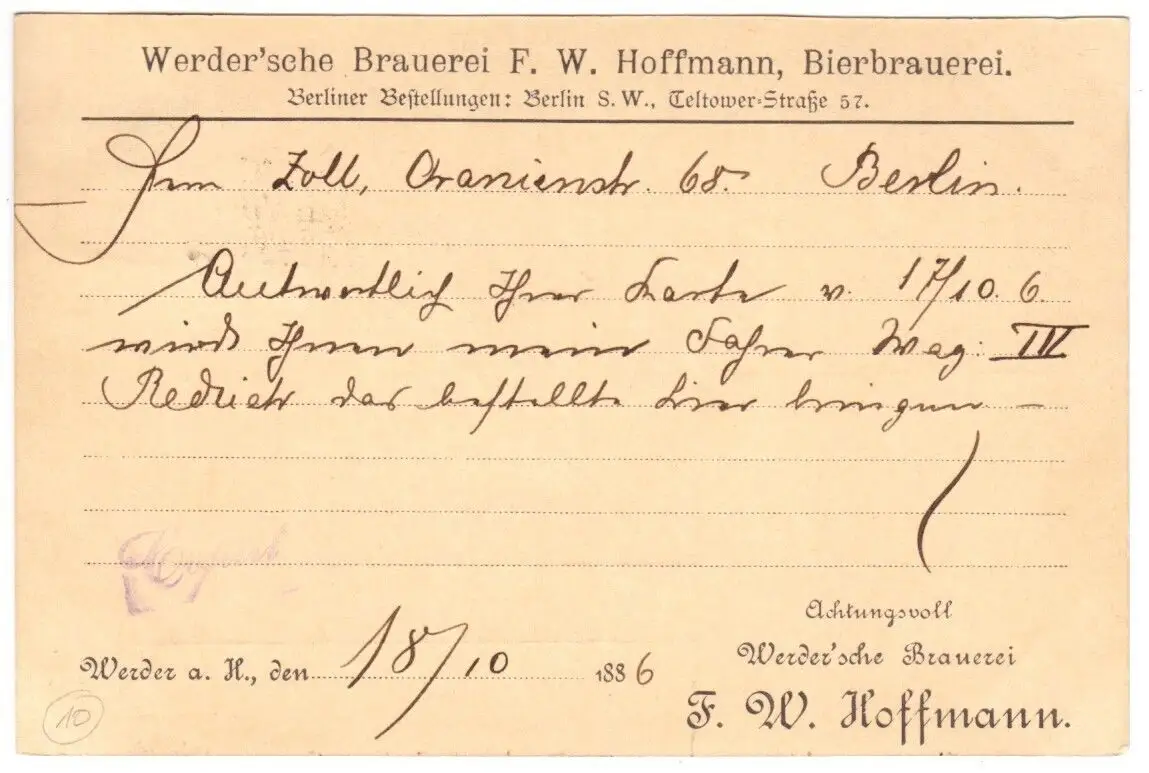 Werder'sche Brauerei F. W. Hoffmann, Bierbrauerei.
Berliner Bestellungen: Berlin S. W., Teltower-Straße 57.
Herrn Zoll, Oranienstr. 68. Berlin.
Antwortlich Ihrer Karte v. 17/10. 6.
wird Ihnen mein Fahrer Wag: IV
das bestellte bringen –
Achtungsvoll
Werder'sche Brauerei
F. W. Hoffmann.
Werder a. H., den 18/10 1886
10